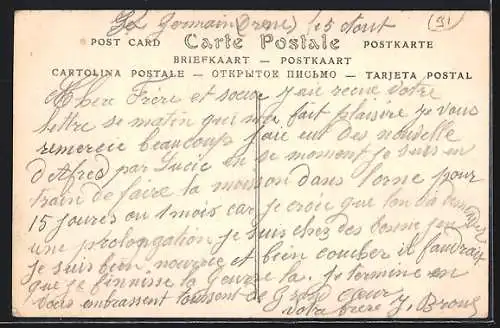 St Germain (Orne) 15 Aout
(91)
POST CARD Carte Postale POSTKARTE
BRIEFKAART — POSTKAART
CARTOLINA POSTALE — ОТКРЫТОК ПИСЬМО — TARJETA POSTAL
Chere Frère et soeur j'ai recue votre
lettre se matin qui ma fait plaisire je vous
remercie beaucoup jaie eut des nouvelle
d'Alfred par Lucie en se moment je suis en
train de faire la moisson dans l'orne pour
15 joures ou 1 mois car je croie que lon va demander
une prolongation je suis chez des bonne
je suis bien nourrie et bien coucher il faudrait
que je finnisse la Geurre la. je termine en
vous embrassent tousent de Gros cœur
votre frère J.